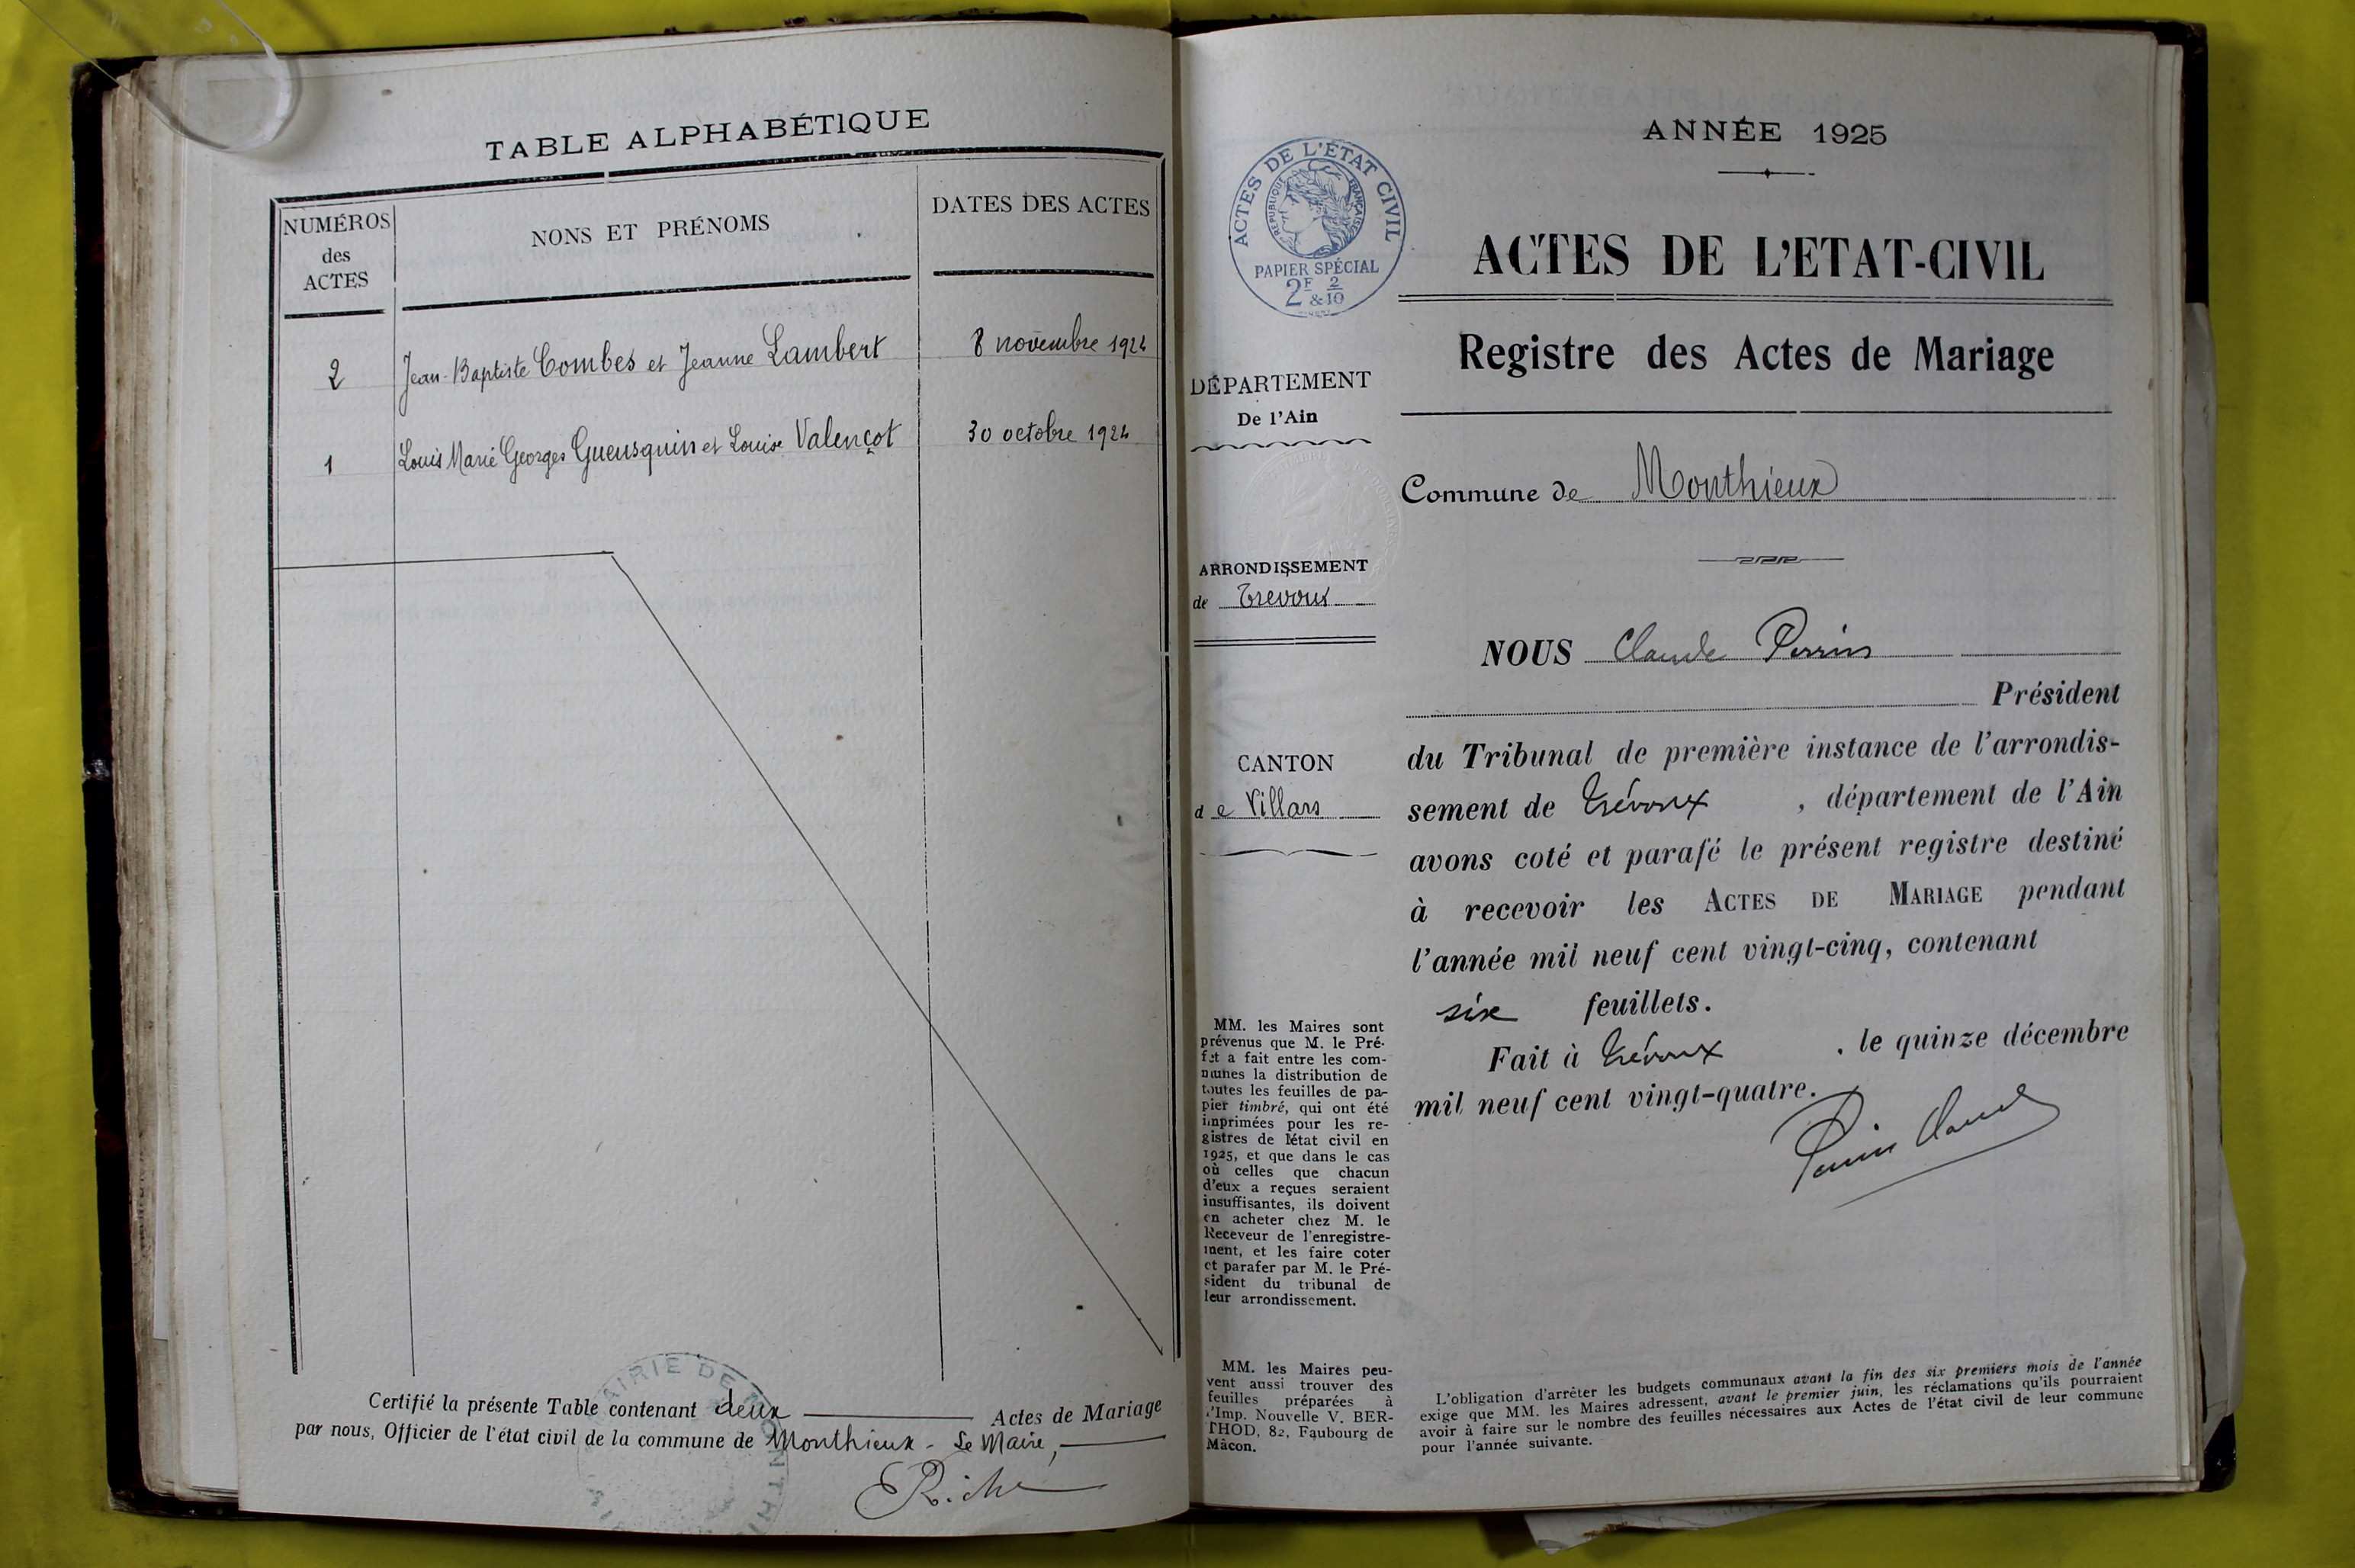 TABLE ALPHABÉTIQUE
NUMÉROS
des
ACTES
NONS ET PRÉNOMS
DATES DES ACTES
2 Jean-Baptiste Combes et Jeanne Lambert 8 novembre 1924
1 Louis Marie Georges Gueusquin et Louise Valençot 30 octobre 1924
Certifié la présente Table contenant deux Actes de Mariage
par nous, Officier de l'état civil de la commune de Monthieux - Le Maire,
MAIRIE DE MONTHI
Riche
ANNÉE 1925
ACTES DE L'ÉTAT CIVIL
RÉPUBLIQUE FRANÇAISE
PAPIER SPÉCIAL
2F & 2/10
ACTES DE L'ETAT-CIVIL
Registre des Actes de Mariage
DÉPARTEMENT
De l'Ain
Commune de Monthieux
ARRONDISSEMENT
de Trevoux
CANTON
de Villars
MM. les Maires sont
prévenus que M. le Pré-
fet a fait entre les com-
munes la distribution de
toutes les feuilles de pa-
pier timbré, qui ont été
imprimées pour les re-
gistres de l'état civil en
1925, et que dans le cas
où celles que chacun
d'eux a reçues seraient
insuffisantes, ils doivent
en acheter chez M. le
Receveur de l'enregistre-
ment, et les faire coter
et parafer par M. le Pré-
sident du tribunal de
leur arrondissement.
MM. les Maires peu-
vent aussi trouver des
feuilles préparées à
l'Imp. Nouvelle V. BER-
THOD, 82, Faubourg de
Mâcon.
NOUS Claude Perrin
Président
du Tribunal de première instance de l'arrondis-
sement de Trévoux , département de l'Ain
avons coté et parafé le présent registre destiné
à recevoir les ACTES DE MARIAGE pendant
l'année mil neuf cent vingt-cinq, contenant
six feuillets.
Fait à Trévoux , le quinze décembre
mil neuf cent vingt-quatre.
Perrin Claude
L'obligation d'arrêter les budgets communaux avant la fin des six premiers mois de l'année
exige que MM. les Maires adressent, avant le premier juin, les réclamations qu'ils pourraient
avoir à faire sur le nombre des feuilles nécessaires aux Actes de l'état civil de leur commune
pour l'année suivante.